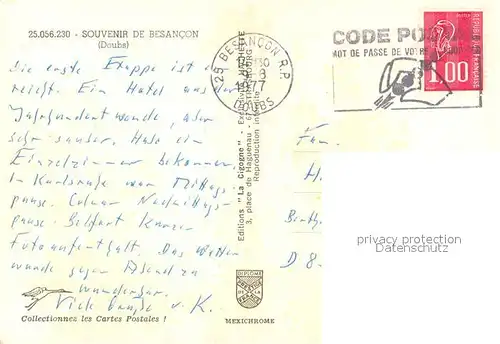 25.056.230 - SOUVENIR DE BESANÇON
(Doubs)
Die erste Etappe ist er-
reicht. Ein Hotel aus
Jahrhundertwende, aber
sehr sauber. Habe ein
Einzelzimmer bekommen.
In Karlsruhe war Mittags-
pause. Colmar Nachmittags-
pause. Belfort kurzer
Fotoaufenthalt. Das Wetter
wurde gegen Abend zu
wunderbar.
Viele Grüße v. K.
Collectionnez les Cartes Postales !
Editions "La Cigogne" - Exclusivité HACHETTE
3, place de Haguenau - 67 STRASBOURG
Reproduction interdite
DIPLOME
PRESTIGE
DE LA
FRANCE
MEXICHROME
25 BESANCON R.P.
1977
DOUBS
CODE POSTAL
MOT DE PASSE DE VOTRE
POSTES
REPUBLIQUE FRANÇAISE
1,00
Fam.
H.
D 8
privacy protection
Datenschutz